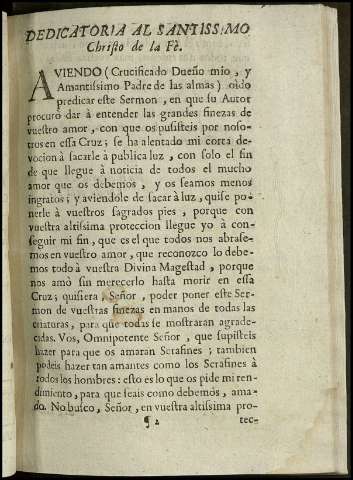 DEDICATORIA AL SANTISSIMO
Christo de la Fè.
AVIENDO (Crucificado Dueño mio, y
Amantissimo Padre de las almas) oìdo
predicar este Sermon, en que su Autor
procurò dar à entender las grandes finezas de
vuestro amor, con que os pusisteis por noso-
tros en essa Cruz; se ha alentado mi corta de-
vocion à sacarle à publica luz, con solo el fin
de que llegue à noticia de todos el mucho
amor que os debemos, y os seamos menos
ingratos; y aviendole de sacar à luz, quise po-
nerle à vuestros sagrados pies, porque con
vuestra altissima proteccion llegue yo à con-
seguir mi fin, que es el que todos nos abrase-
mos en vuestro amor, que reconozco lo debe-
mos todo à vuestra Divina Magestad, porque
nos amò sin merecerlo hasta morir en essa
Cruz; quisiera, Señor, poder poner este Ser-
mon de vuestras finezas en manos de todas las
criaturas, para que todas se mostraran agrade-
cidas. Vos, Omnipotente Señor, que supisteis
hazer para que os amaran Serafines; tambien
podeis hazer tan amantes como los Serafines à
todos los hombres: esto es lo que os pide mi ren-
dimiento, para que seais como debemos, ama-
do. No busco, Señor, en vuestra altissima pro-
¶2 tec-